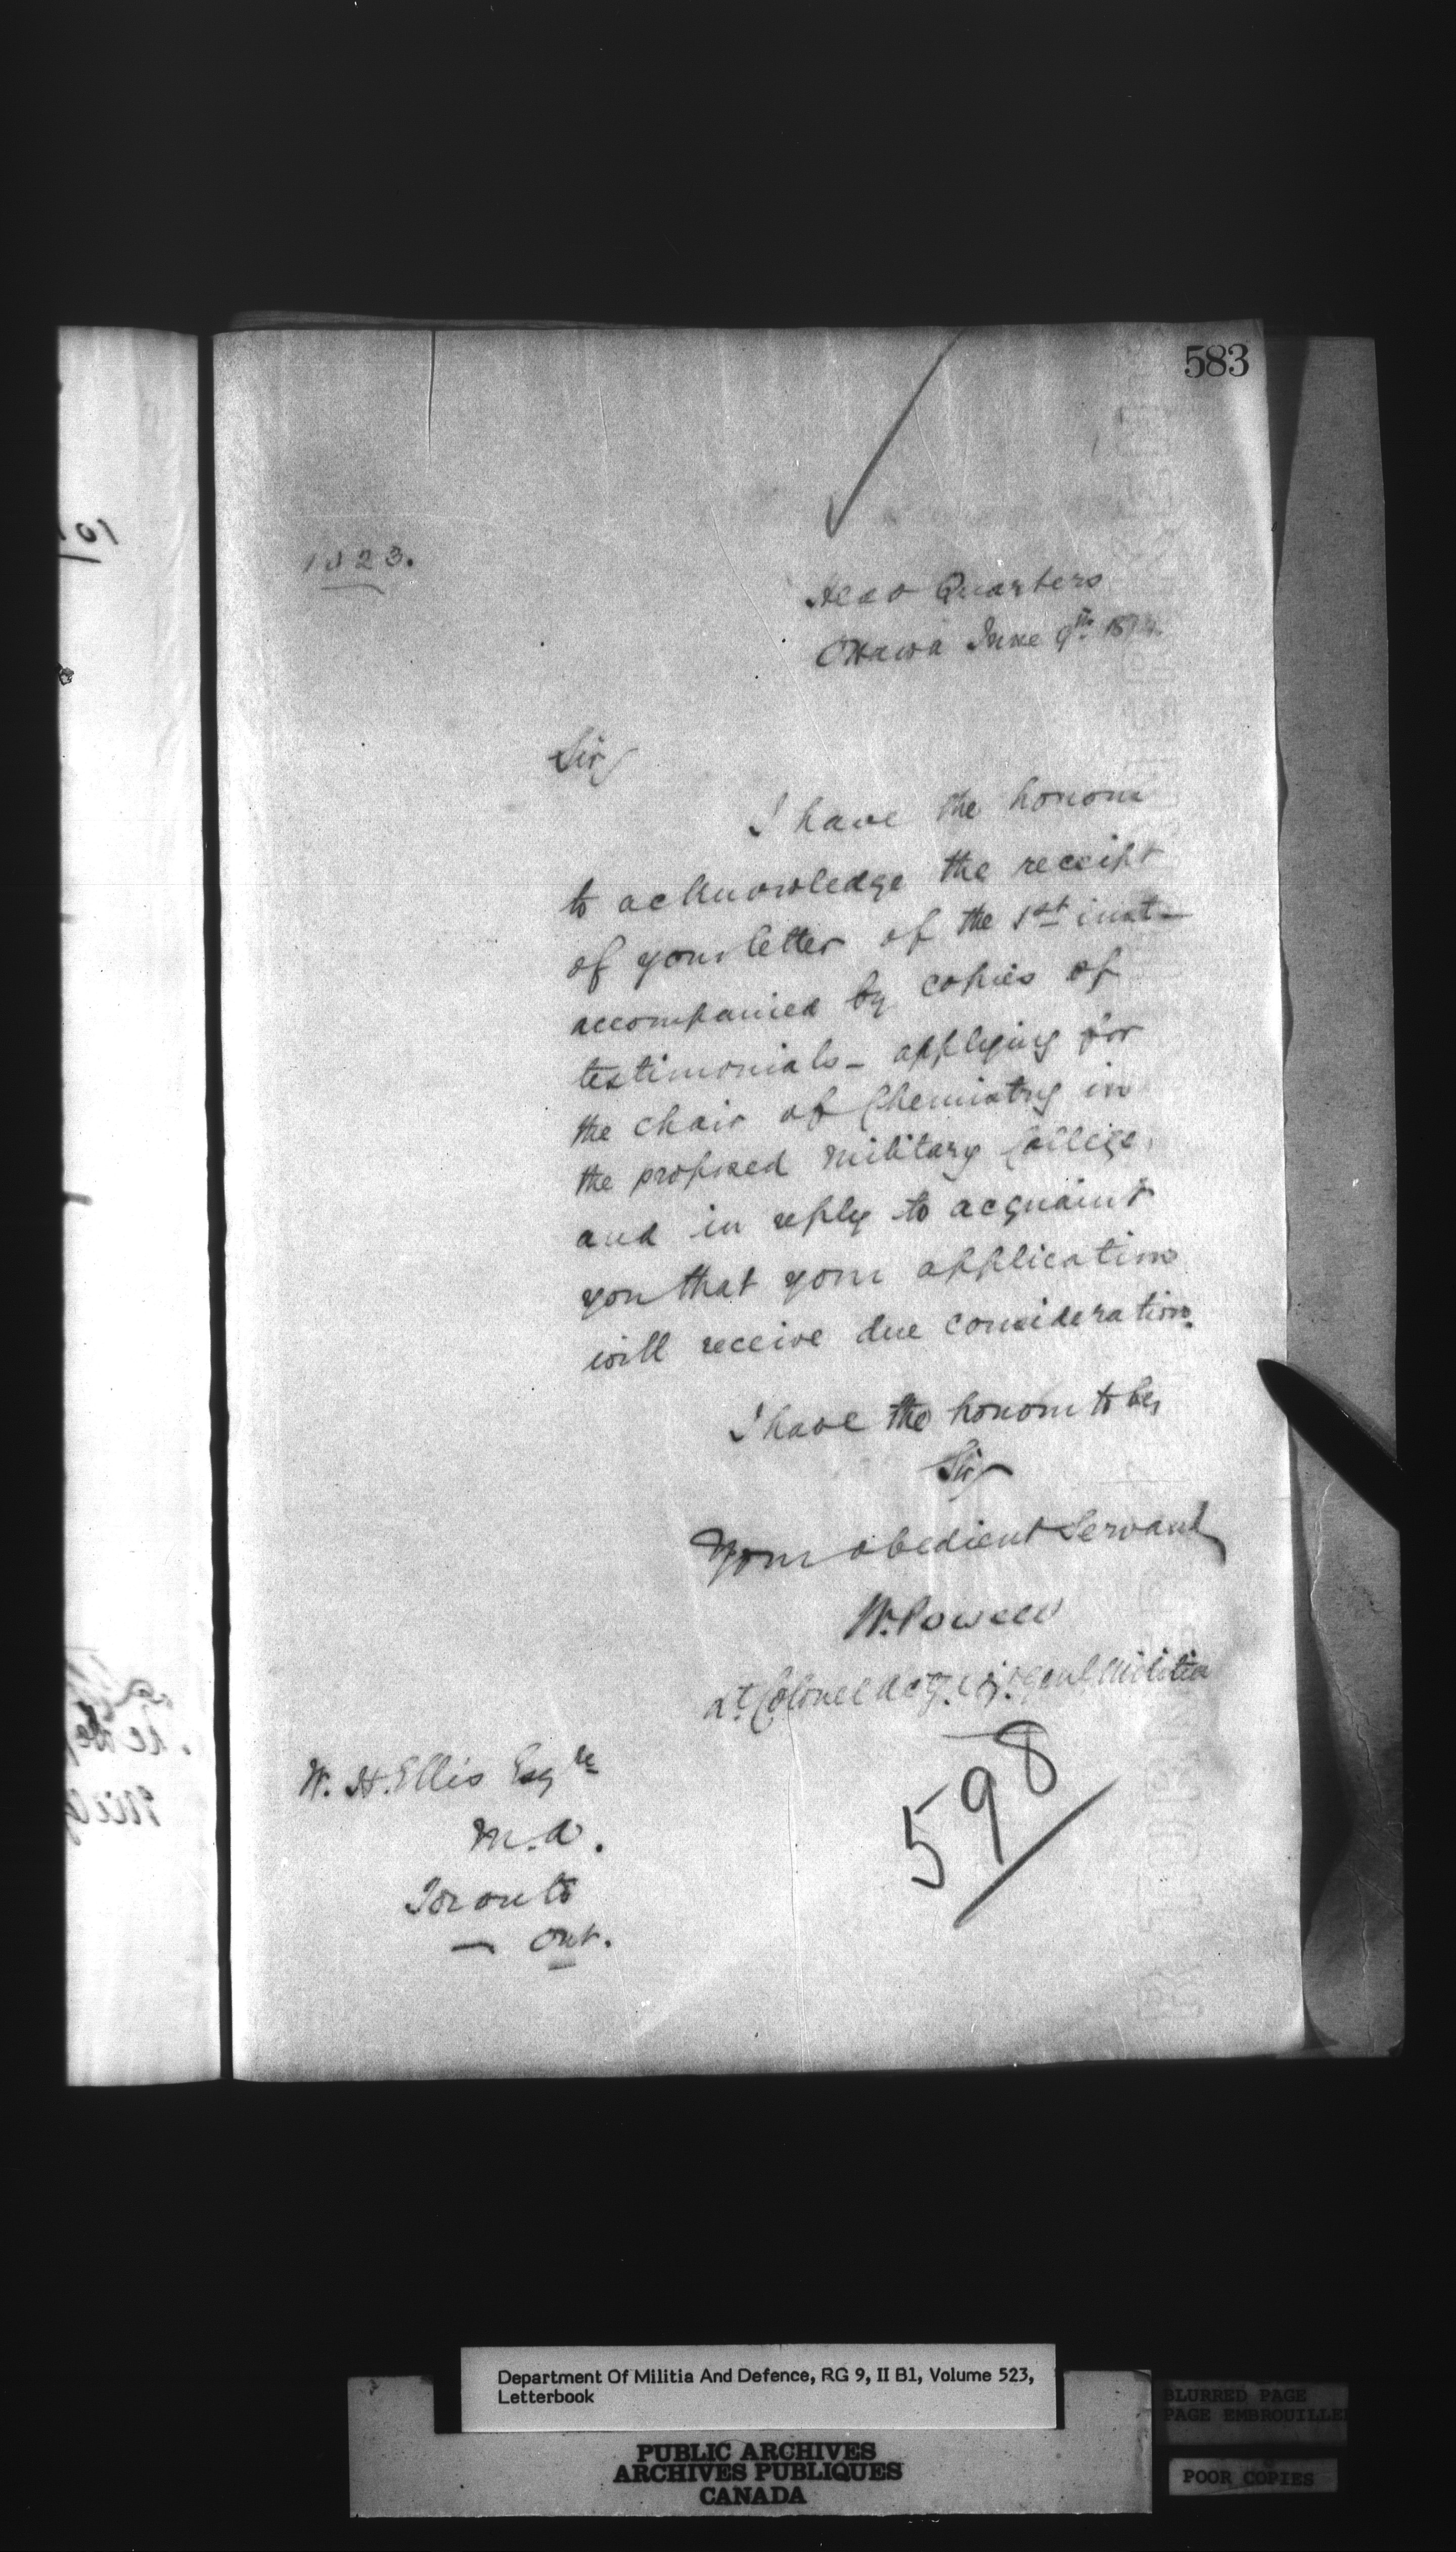 583
1823.
Head Quarters
Ottawa June 9th 1874.
Sir,
I have the honour
to acknowledge the receipt
of your letter of the 1st inst-
accompanied by copies of
testimonials - applying for
the chair of Chemistry in
the proposed Military College,
and in reply to acquaint
you that your application
will receive due consideration.
I have the honour to be,
Sir
Your obedient Servant
W. Powell
Lt. Colonel Actg. Adjt. Genl Militia
598
W. H. Ellis Esqre
M.A.
Toronto
— Ont.
Department Of Militia And Defence, RG 9, II B1, Volume 523,
Letterbook
PUBLIC ARCHIVES
ARCHIVES PUBLIQUES
CANADA
BLURRED PAGE
PAGE EMBROUILLE
POOR COPIES